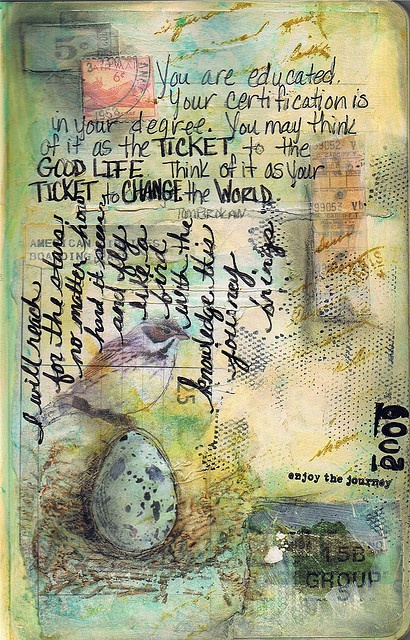 5¢
6¢
1959
You are educated.
Your certification is
in your degree. You may think
of it as the TICKET to the
GOOD LIFE Think of it as your
TICKET to CHANGE the WORLD
TOM BROKAW
99052 V
99053 Vb
AMERICAN
BOARDING
I will reach
for the stars!
no matter how
hard it seems
and fly
like a
bird
with the
knowledge this
journey
brings.
2009
enjoy the journey
15B
GROUP
5